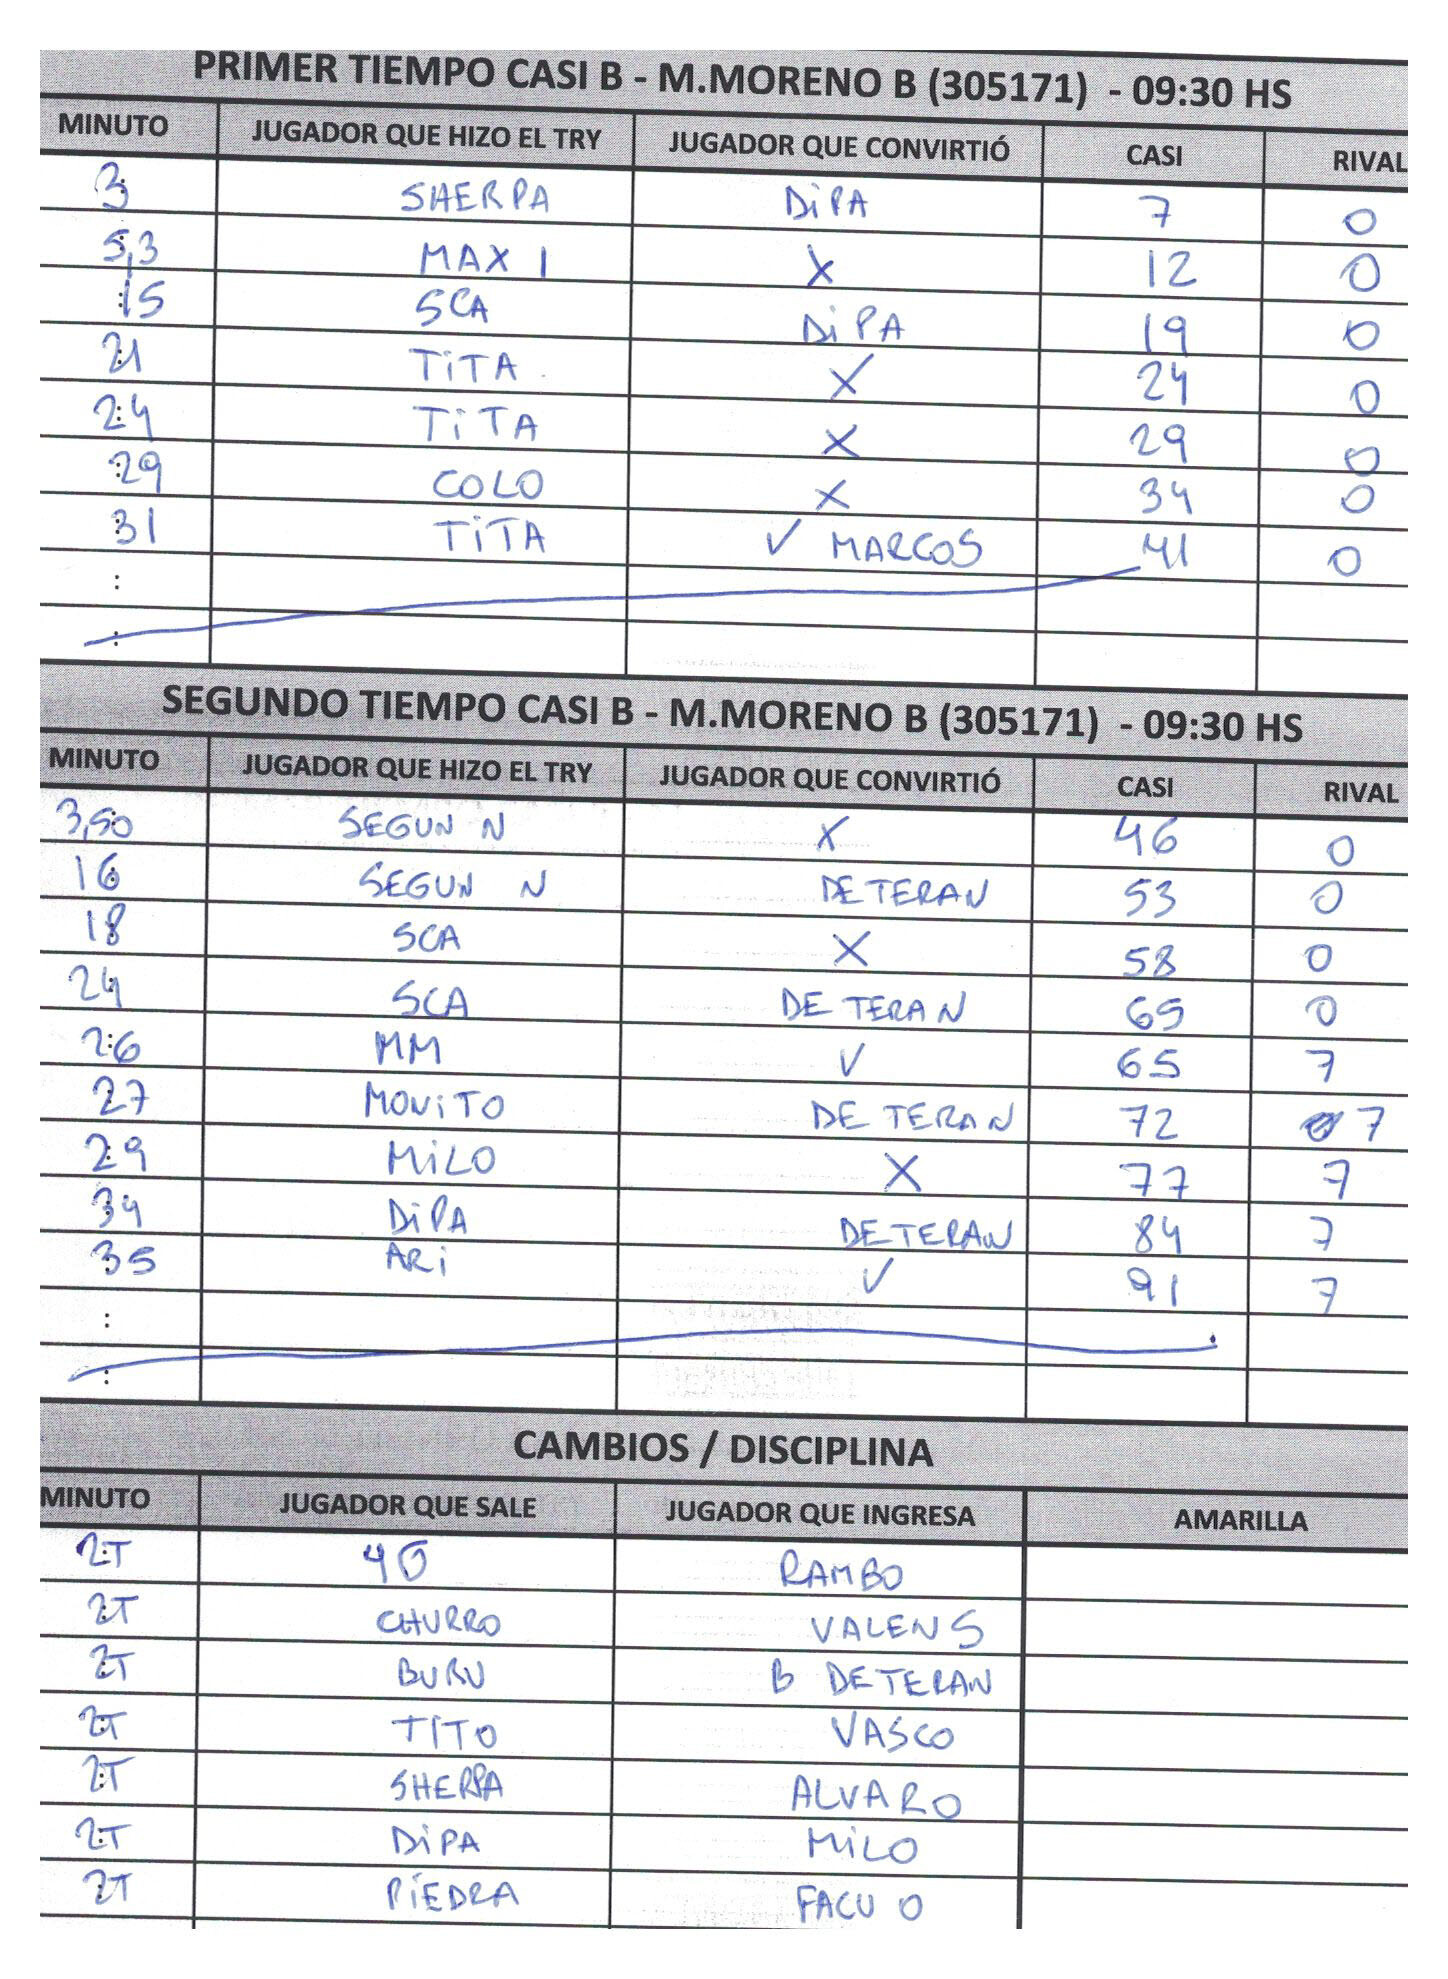 PRIMER TIEMPO CASI B - M.MORENO B (305171) - 09:30 HS
MINUTO JUGADOR QUE HIZO EL TRY JUGADOR QUE CONVIRTIÓ CASI RIVAL
3 SHERPA DiPA 7 0
5,3 MAX I X 12 0
15 SCA DiPA 19 0
21 TiTA X 24 0
24 TiTA X 29 0
29 COLO X 34 0
31 TiTA ✓ MARCOS 41 0
:
:
SEGUNDO TIEMPO CASI B - M.MORENO B (305171) - 09:30 HS
MINUTO JUGADOR QUE HIZO EL TRY JUGADOR QUE CONVIRTIÓ CASI RIVAL
3,50 SEGUN N X 46 0
16 SEGUN N DE TERAN 53 0
18 SCA X 58 0
24 SCA DE TERAN 65 0
26 MM ✓ 65 7
27 MONiTO DE TERAN 72 7
29 MiLO X 77 7
34 DiPA DE TERAN 84 7
35 ARi ✓ 91 7
:
:
CAMBIOS / DISCIPLINA
MINUTO JUGADOR QUE SALE JUGADOR QUE INGRESA AMARILLA
2T RAMBO
2T CHURRO VALEN S
2T BURU B DE TERAN
2T TITO VASCO
2T SHERPA ALVARO
2T DiPA MiLO
2T PiEDRA FACU O